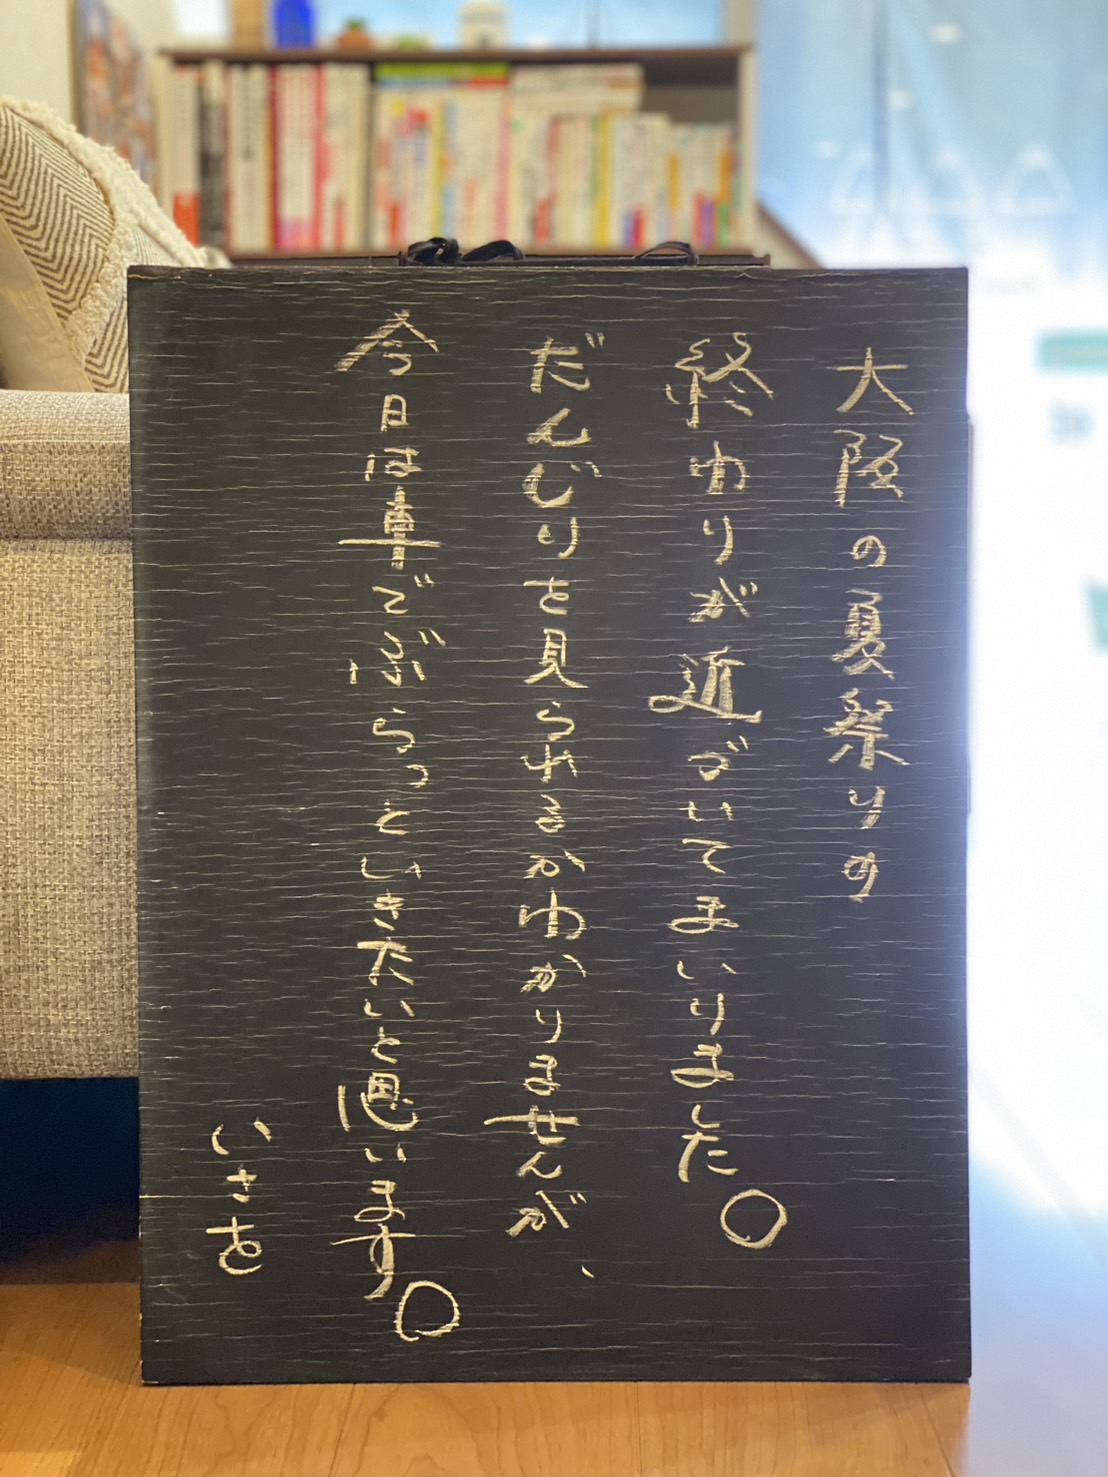 大阪の夏祭りの
終わりが近づいてまいりました。
だんじりを見られるかわかりませんが、
今日は車でぶらっといきたいと思います。
いさを